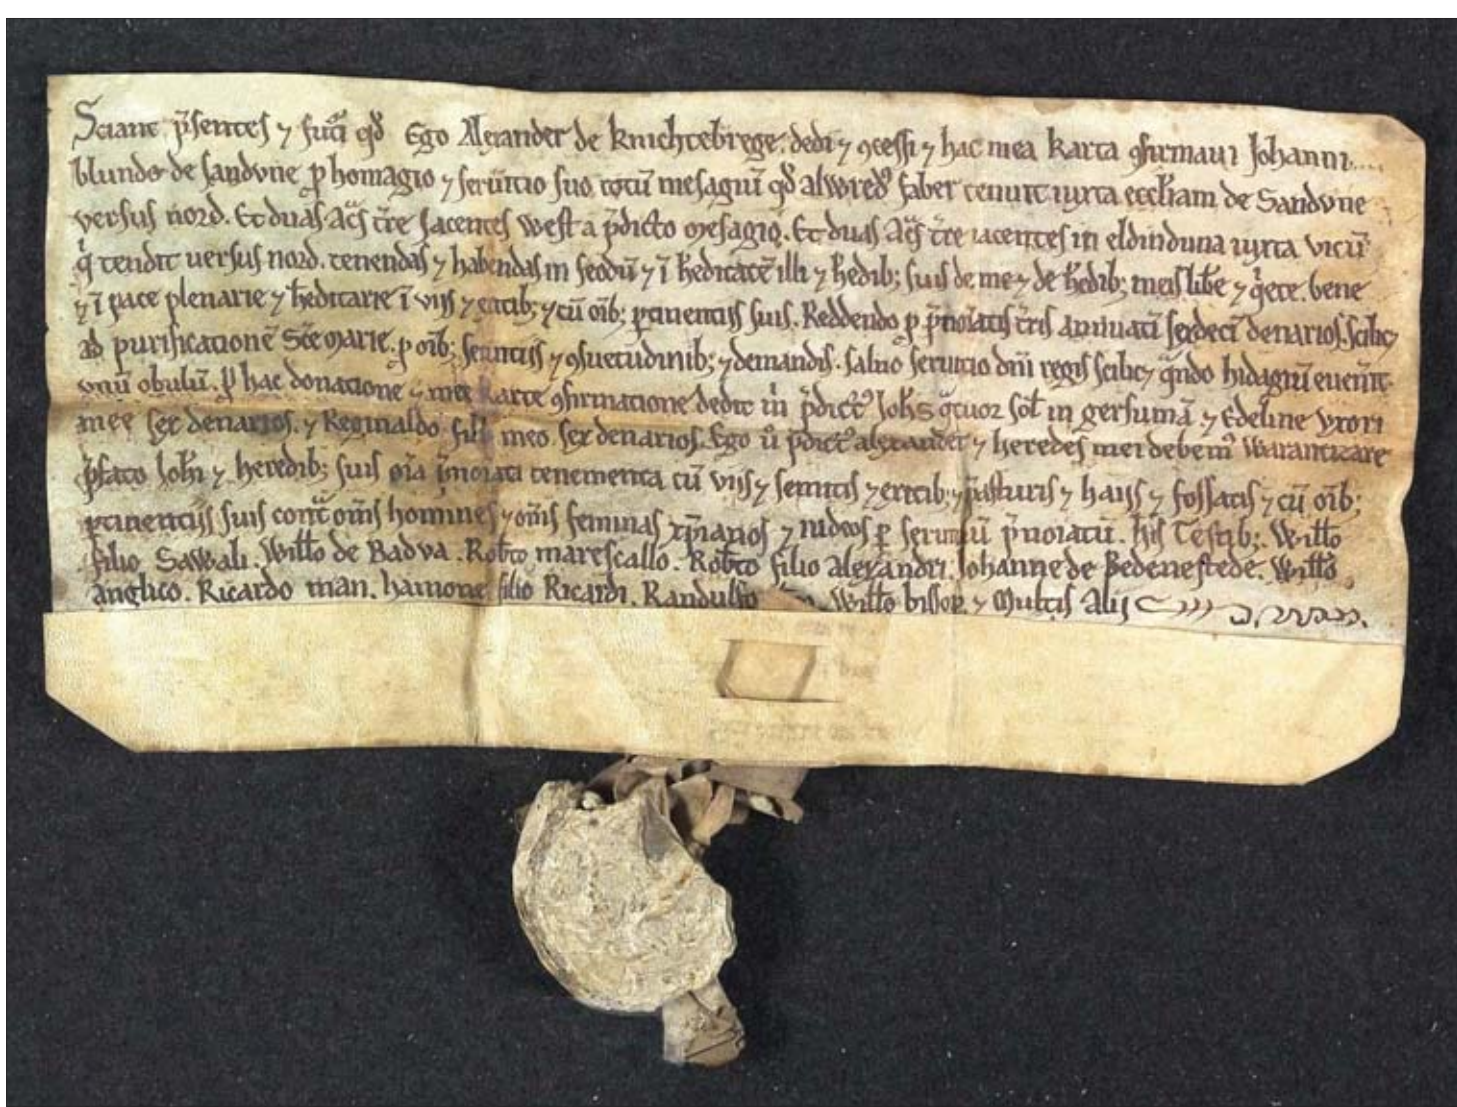 Sciant p̄sentes ⁊ fut̄i qd̄ Ego Alexander de knichtebrege. dedi ⁊ ꝯcessi ⁊ hac mea karta ꝯfirmaui Johanni....
blundo de sandvne ꝓ homagio ⁊ seruitio suo totū mesagiū qd̄ alwredꝰ faber tenuit iuxta eccl̄iam de Sandvne
versus nord. Et duas Ac̄s t̄re Jacentes west a p̄dicto mesagio. Et duas Ac̄s t̄re iacentes in eldinduna iuxta vicū
q̄ tendit uersus nord. tenendas ⁊ habendas in feodū ⁊ ī h̄editatē illi ⁊ h̄edib; suis de me ⁊ de h̄edib; meis lib̄e ⁊ q̄ete. bene
⁊ ī pace plenarie ⁊ h̄editarie ī viis ⁊ exitib; ⁊ cū oīb; ꝑtinentiis suis. Reddendo ꝓ p̄noīatis t̄ris annuatī sexdecī denarios. scilic;
ad purificationē Sc̄e Marie. ꝓ oīb; seruitiis ⁊ ꝯsuetudinib; ⁊ demandis. saluo seruitio dn̄i regis scilic; q̄ndo hidagiū euen̄it
vnū obulū. ꝓ hac donatione ⁊ mee karte ꝯfirmatione dedit m̄ p̄dictꝰ Joh̄s q̄tuor sol̄ in gersumā. ⁊ Edeline vxori
mee sex denarios. ⁊ Reginaldo filio meo sex denarios. Ego ū p̄dictꝰ alexander ⁊ heredes mei debemꝰ warantizare
p̄fato Joh̄i ⁊ heredib; suis oīa p̄noīata tenementa cū viis ⁊ semitis ⁊ exitib; ⁊ pasturis ⁊ haiis ⁊ fossatis ⁊ cū oīb;
ꝑtinentiis suis cont̄ om̄s homines ⁊ om̄s feminas xp̄ianos ⁊ iudeos ꝑ seruitiū p̄noīatū. His Testib;. Will̄o
filio Sawali. Will̄o de Badva. Rob̄to marescallo. Rob̄to filio alexandri. Johanne de Bedenestede. Will̄o
anglico. Ricardo man. hamone filio Ricardi. Randulfo Will̄o bissop ⁊ Multis Aliis